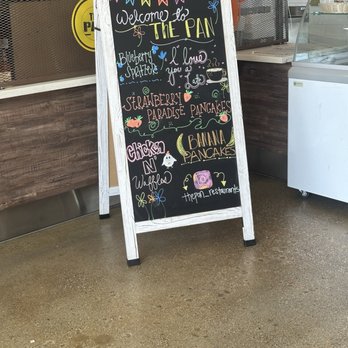 Welcome to
THE PAN
Blueberry
I love
you a
STRAWBERRY
PARADISE PANCAKES
Chicken
N'
Waffles
BANANA
PANCAKES
thepan_restaurants